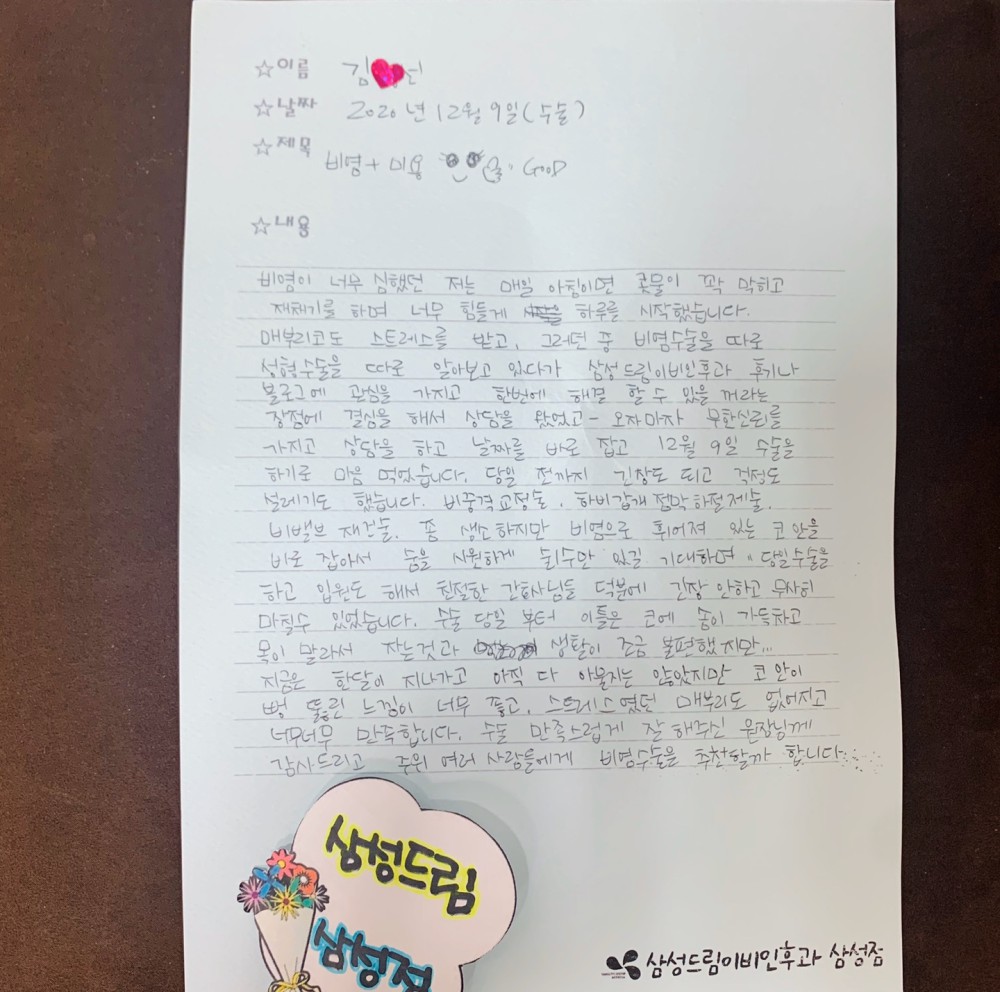 ☆이름 김♥선
☆날짜 2020년 12월 9일(수술)
☆제목 비염+미용 GOOD
☆내용
비염이 너무 심했던 저는 매일 아침이면 콧물이 꽉 막히고
재채기를 하며 너무 힘들게 하루를 시작했습니다.
매부리코도 스트레스를 받고, 그러던 중 비염수술을 따로
성형수술을 따로 알아보고 있다가 삼성드림이비인후과 후기나
블로그에 관심을 가지고 한번에 해결 할 수 있을 꺼라는
장점에 결심을 해서 상담을 왔었고- 오자마자 무한신뢰를
가지고 상담을 하고 날짜를 바로 잡고 12월 9일 수술을
하기로 마음 먹었습니다. 당일 전까지 긴장도 되고 걱정도
설레기도 했습니다. 비중격교정술, 하비갑개 점막하절제술,
비밸브 재건술. 좀 생소하지만 비염으로 휘어져 있는 코 안을
바로 잡아서 숨을 시원하게 쉴수만 있길 기대하며 당일수술을
하고 입원도 해서 친절한 간호사님들 덕분에 긴장 안하고 무사히
마칠수 있었습니다. 수술 당일 부터 이틀은 코에 솜이 가득차고
목이 말라서 자는것과 생활이 조금 불편했지만...
지금은 한달이 지나가고 아직 다 아물지는 않았지만 코 안이
뻥 뚫린 느낌이 너무 좋고, 스트레스였던 매부리도 없어지고
너무너무 만족합니다. 수술 만족스럽게 잘 해주신 원장님께
감사드리고 주위 여러 사람들에게 비염수술을 추천할까 합니다
삼성드림
삼성점
삼성드림이비인후과 삼성점